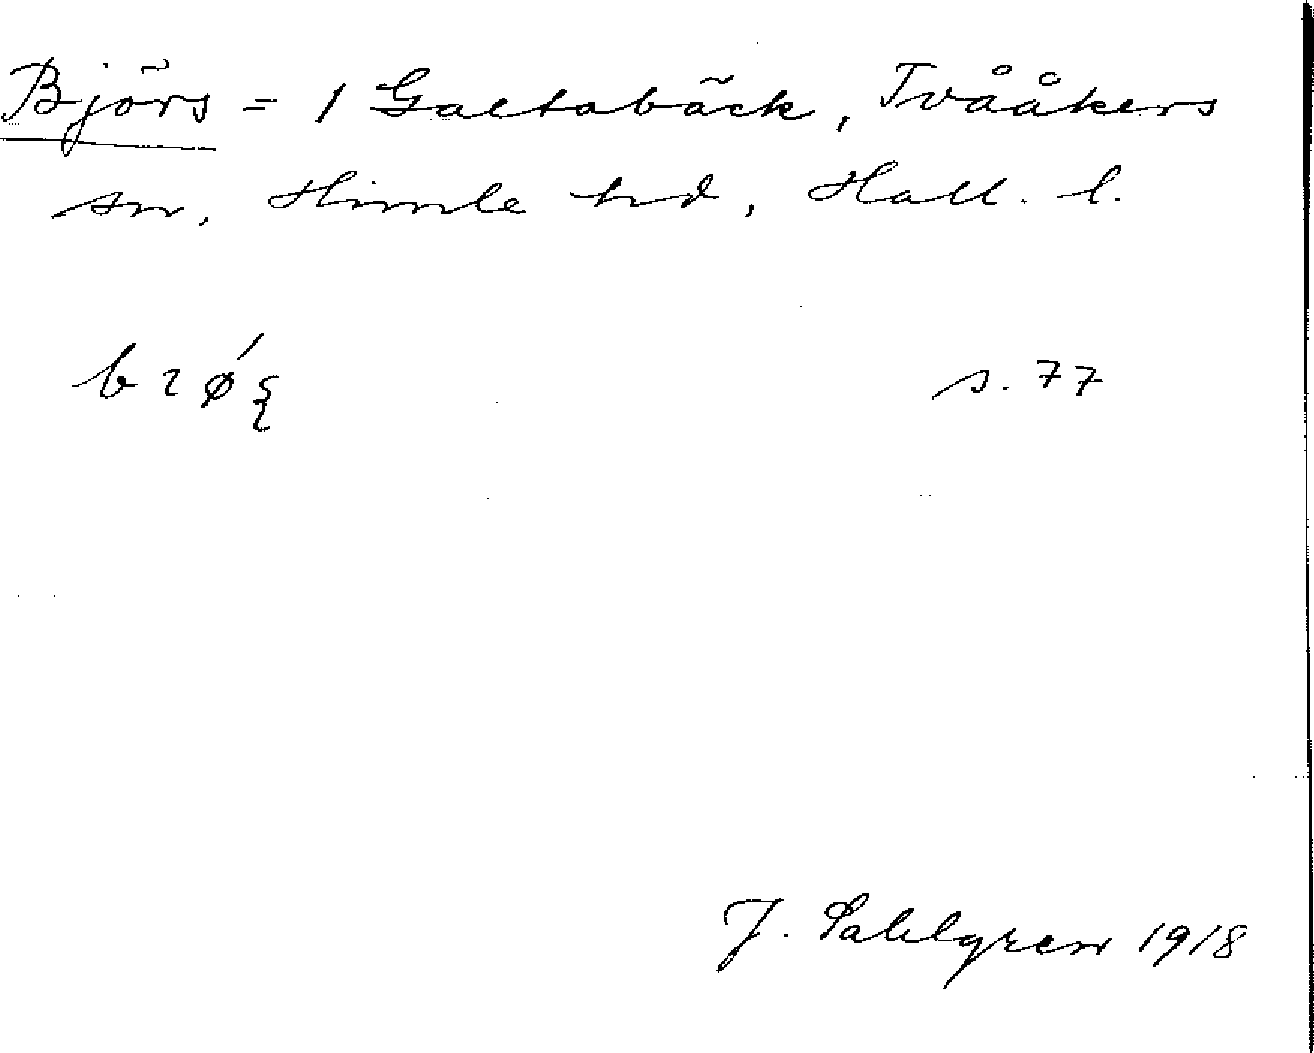 Björs = 1 Galtabäck, Tvååkers
sn, Himle hd, Hall. l.
s. 77
J. Sahlgren 1918